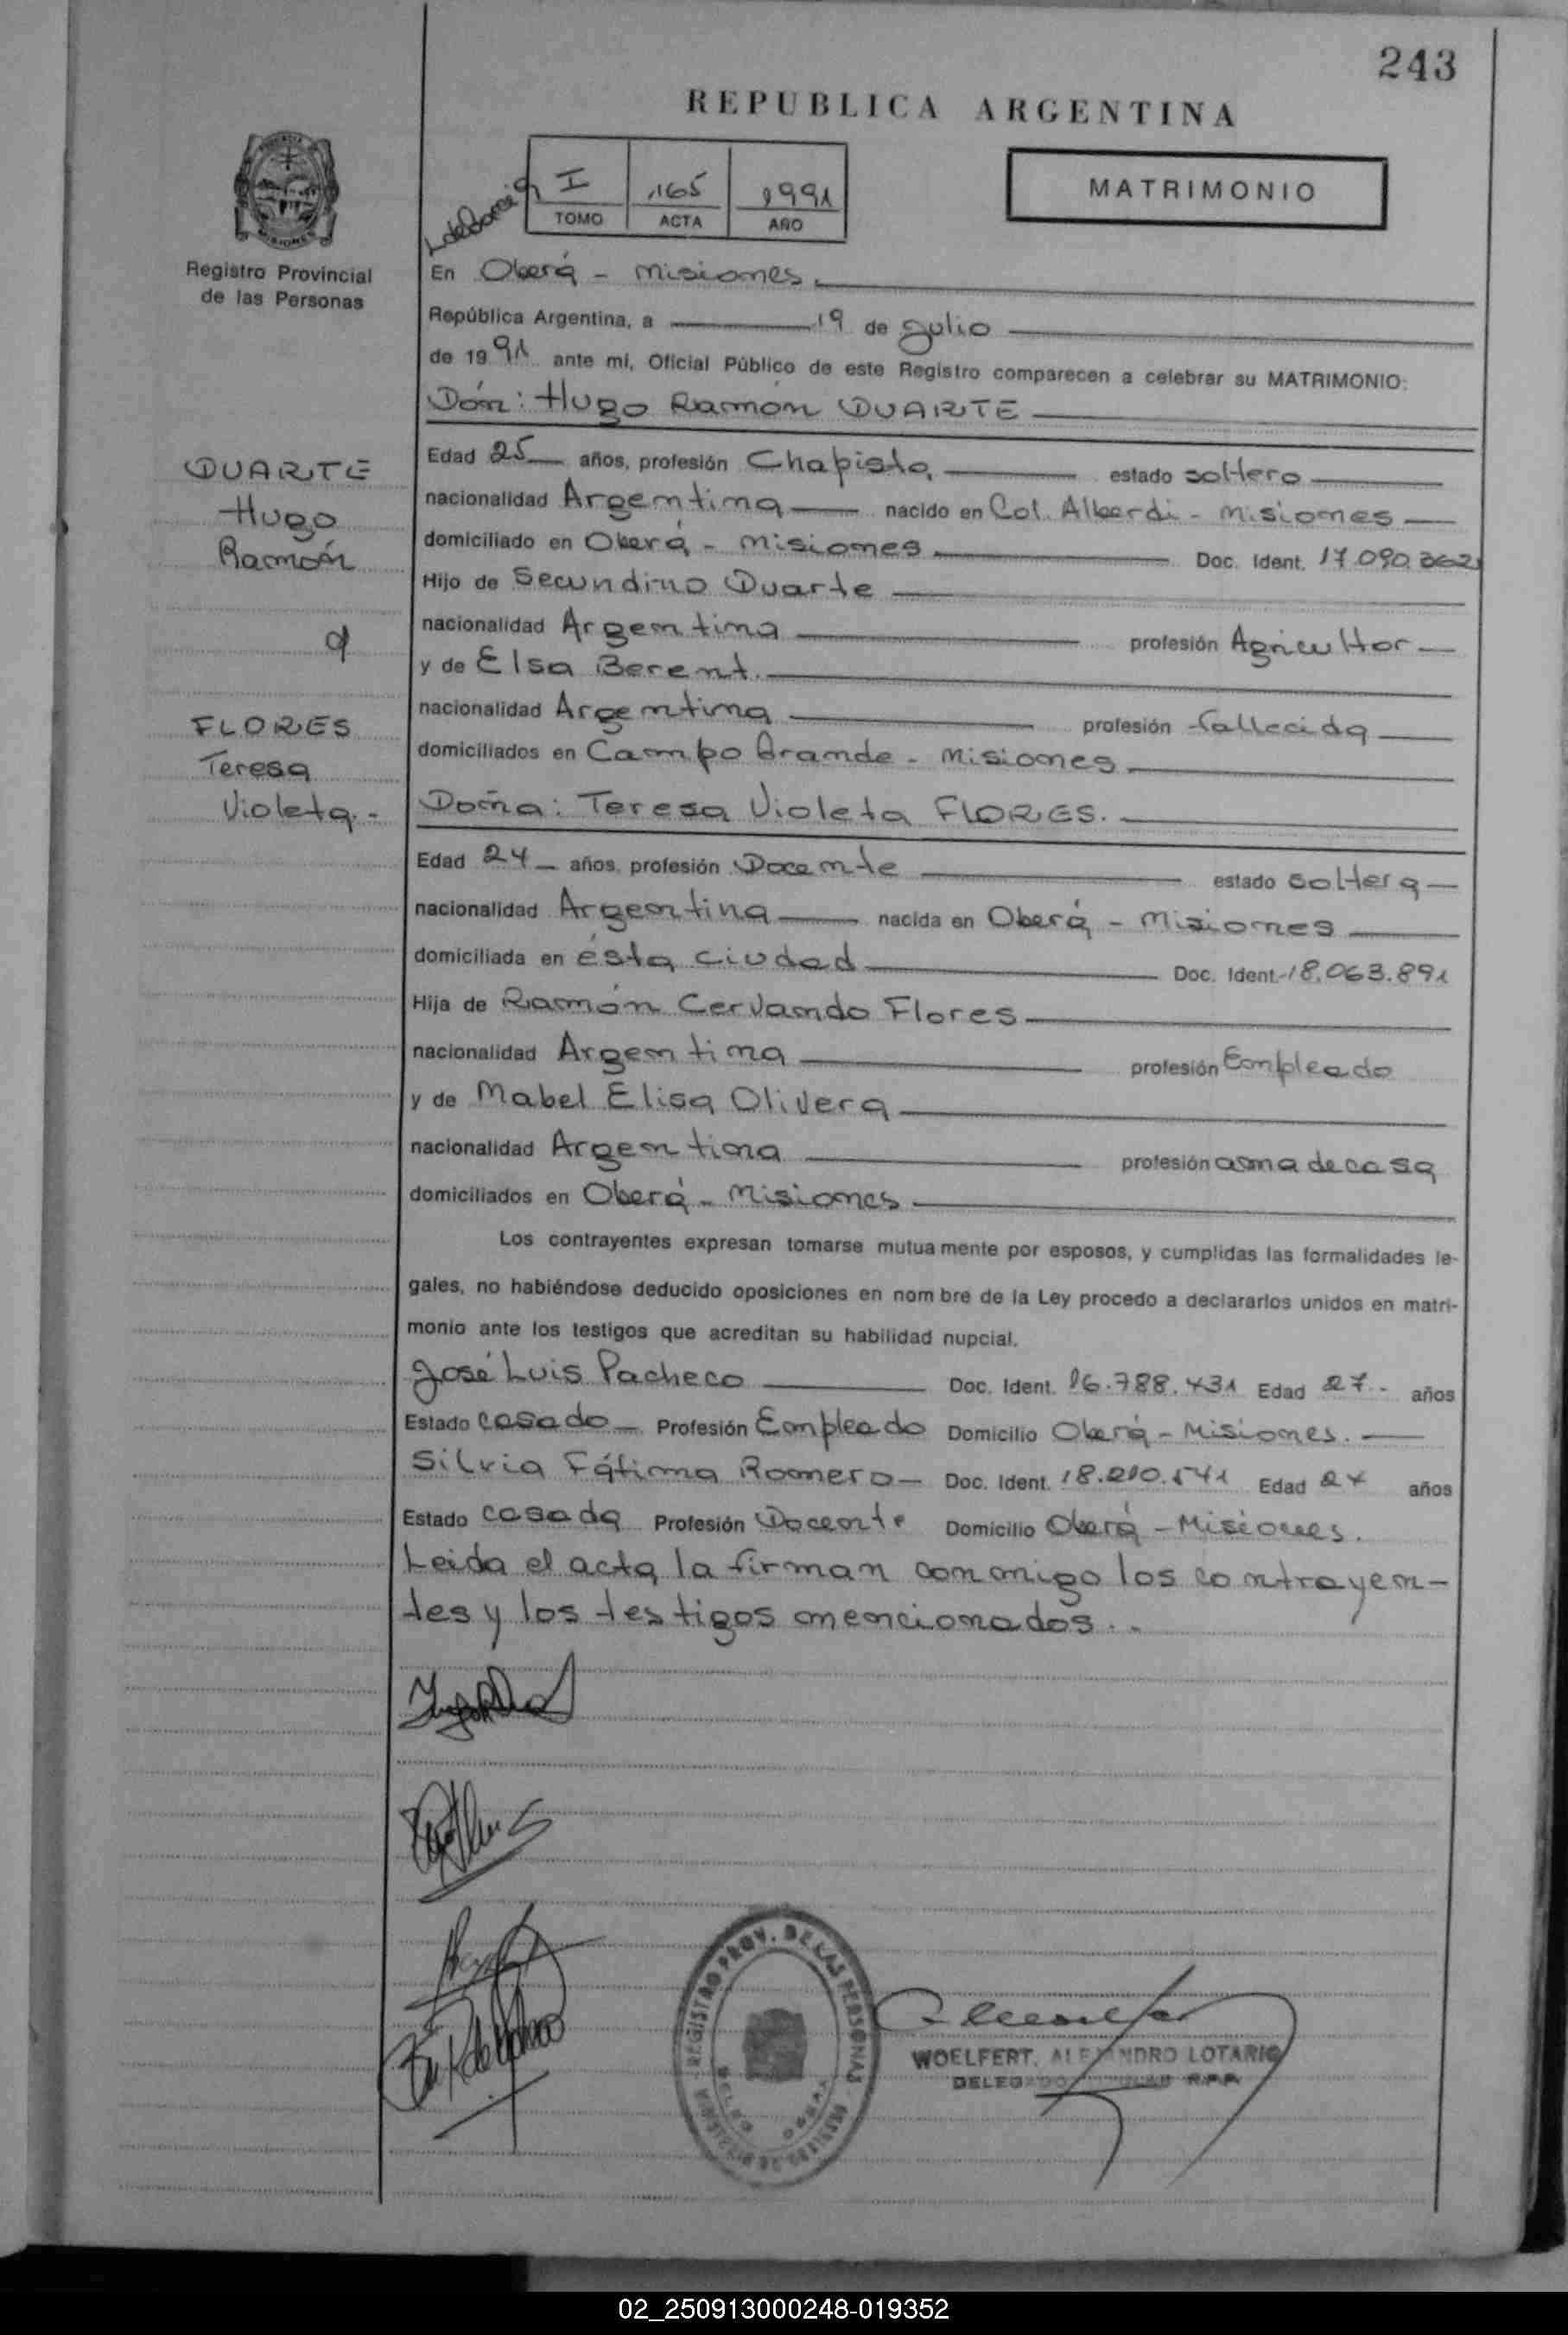 243
REPUBLICA ARGENTINA
I 165 1991
TOMO ACTA AÑO
MATRIMONIO
Registro Provincial
de las Personas
En Oberá - Misiones
República Argentina, a 19 de Julio
de 1991 ante mi, Oficial Público de este Registro comparecen a celebrar su MATRIMONIO:
Dón: Hugo Ramón DUARTE
DUARTE
Hugo
Ramón
Edad 25 años, profesión Chapista, estado soltero
nacionalidad Argentina nacido en Col. Alberdi - Misiones
domiciliado en Oberá - Misiones Doc. Ident. 17.090.362
Hijo de Secundino Duarte
nacionalidad Argentina profesión Agricultor
y de Elsa Berent.
nacionalidad Argentina profesión fallecida
domiciliados en Campo Grande - Misiones
FLORES
Teresa
Violeta.-
Doña: Teresa Violeta FLORES.
Edad 24 años, profesión Docente estado soltera
nacionalidad Argentina nacida en Oberá - Misiones
domiciliada en ésta ciudad Doc. Ident. 18.063.891
Hija de Ramón Cervando Flores
nacionalidad Argentina profesión Empleado
y de Mabel Elisa Olivera
nacionalidad Argentina profesión ama de casa
domiciliados en Oberá - Misiones
Los contrayentes expresan tomarse mutuamente por esposos, y cumplidas las formalidades le-
gales, no habiéndose deducido oposiciones en nombre de la Ley procedo a declararlos unidos en matri-
monio ante los testigos que acreditan su habilidad nupcial.
José Luis Pacheco Doc. Ident. 16.788.431 Edad 27.- años
Estado casado Profesión Empleado Domicilio Oberá - Misiones.
Silvia Fátima Romero Doc. Ident. 18.210.541 Edad 24 años
Estado casada Profesión Docente Domicilio Oberá - Misiones.
Leida el acta la firman conmigo los contrayen-
tes y los testigos mencionados..
REGISTRO PROV. DE LAS PERSONAS
WOELFERT, ALEJANDRO LOTARIO
DELEGADO TITULAR R.P.P.
02_250913000248-019352